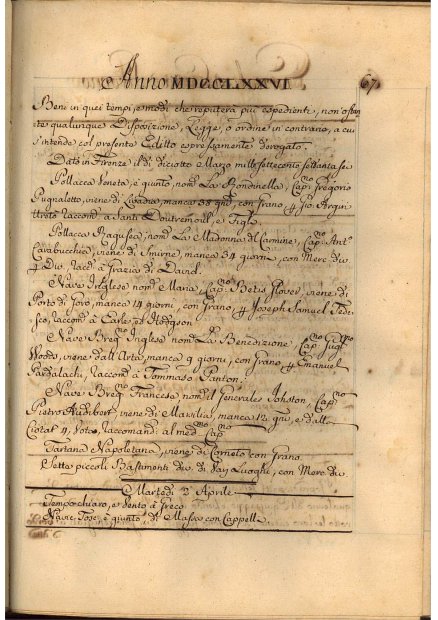 Anno MDCCLXXVI 67
Beni in quei tempi, e modi che reputerà più espedienti, non ostan
te qualunque Disposizione, Legge, o ordine in contrario, a cui
s'intende col presente Editto espressamente derogato.
Dato in Firenze il dì diciotto Marzo mille settecento settanta sei
Pollacca Veneta, è giunto, nom.ª La Rondinella, Cap.no Gregorio
viene di manca 38 gni, con Grano, Gio.
Raccond. a Santi Doutremoul, e Figlo
Pollacca Ragusea, nom.ª La Madonna del Carmine, Cap.no Ant.o
viene di Smirne, manca 54 giorni, con Merc. div.
Div. Racd. a Grazia di David.
Nave Inglese nom.ª Maria, Cap.no viene di
Porto di Goro, manca 14 giorni, con Grano, Joseph Samuel Tede
sco, Raccom. a Earle, ed Hodgson
Nave Breq.no Inglese nom.ª La Benedizione, Cap.no Gugl.mo
Wood, viene dall'Arta, manca 9 giorni, con Grano, Emanuel
Raccom. a Tommaso Panton
Nave Breq.no Francese, nom. il Generales Johston, Cap.no
Pietro Audibert, viene di Marsilia, manca 12 gni, e dalla
Ciotat 4, Vota, Raccomand. al med.mo Cap.no
Tartana Napoletana, viene di Corneto con Grano
Sette piccoli Bastimenti div. di Varj Luoghi, con Merc. div.
Martedì 2 Aprile
Tempo chiaro, e Vento a Greco
Nav. Tos. è giunto, di Massa con Cappelli